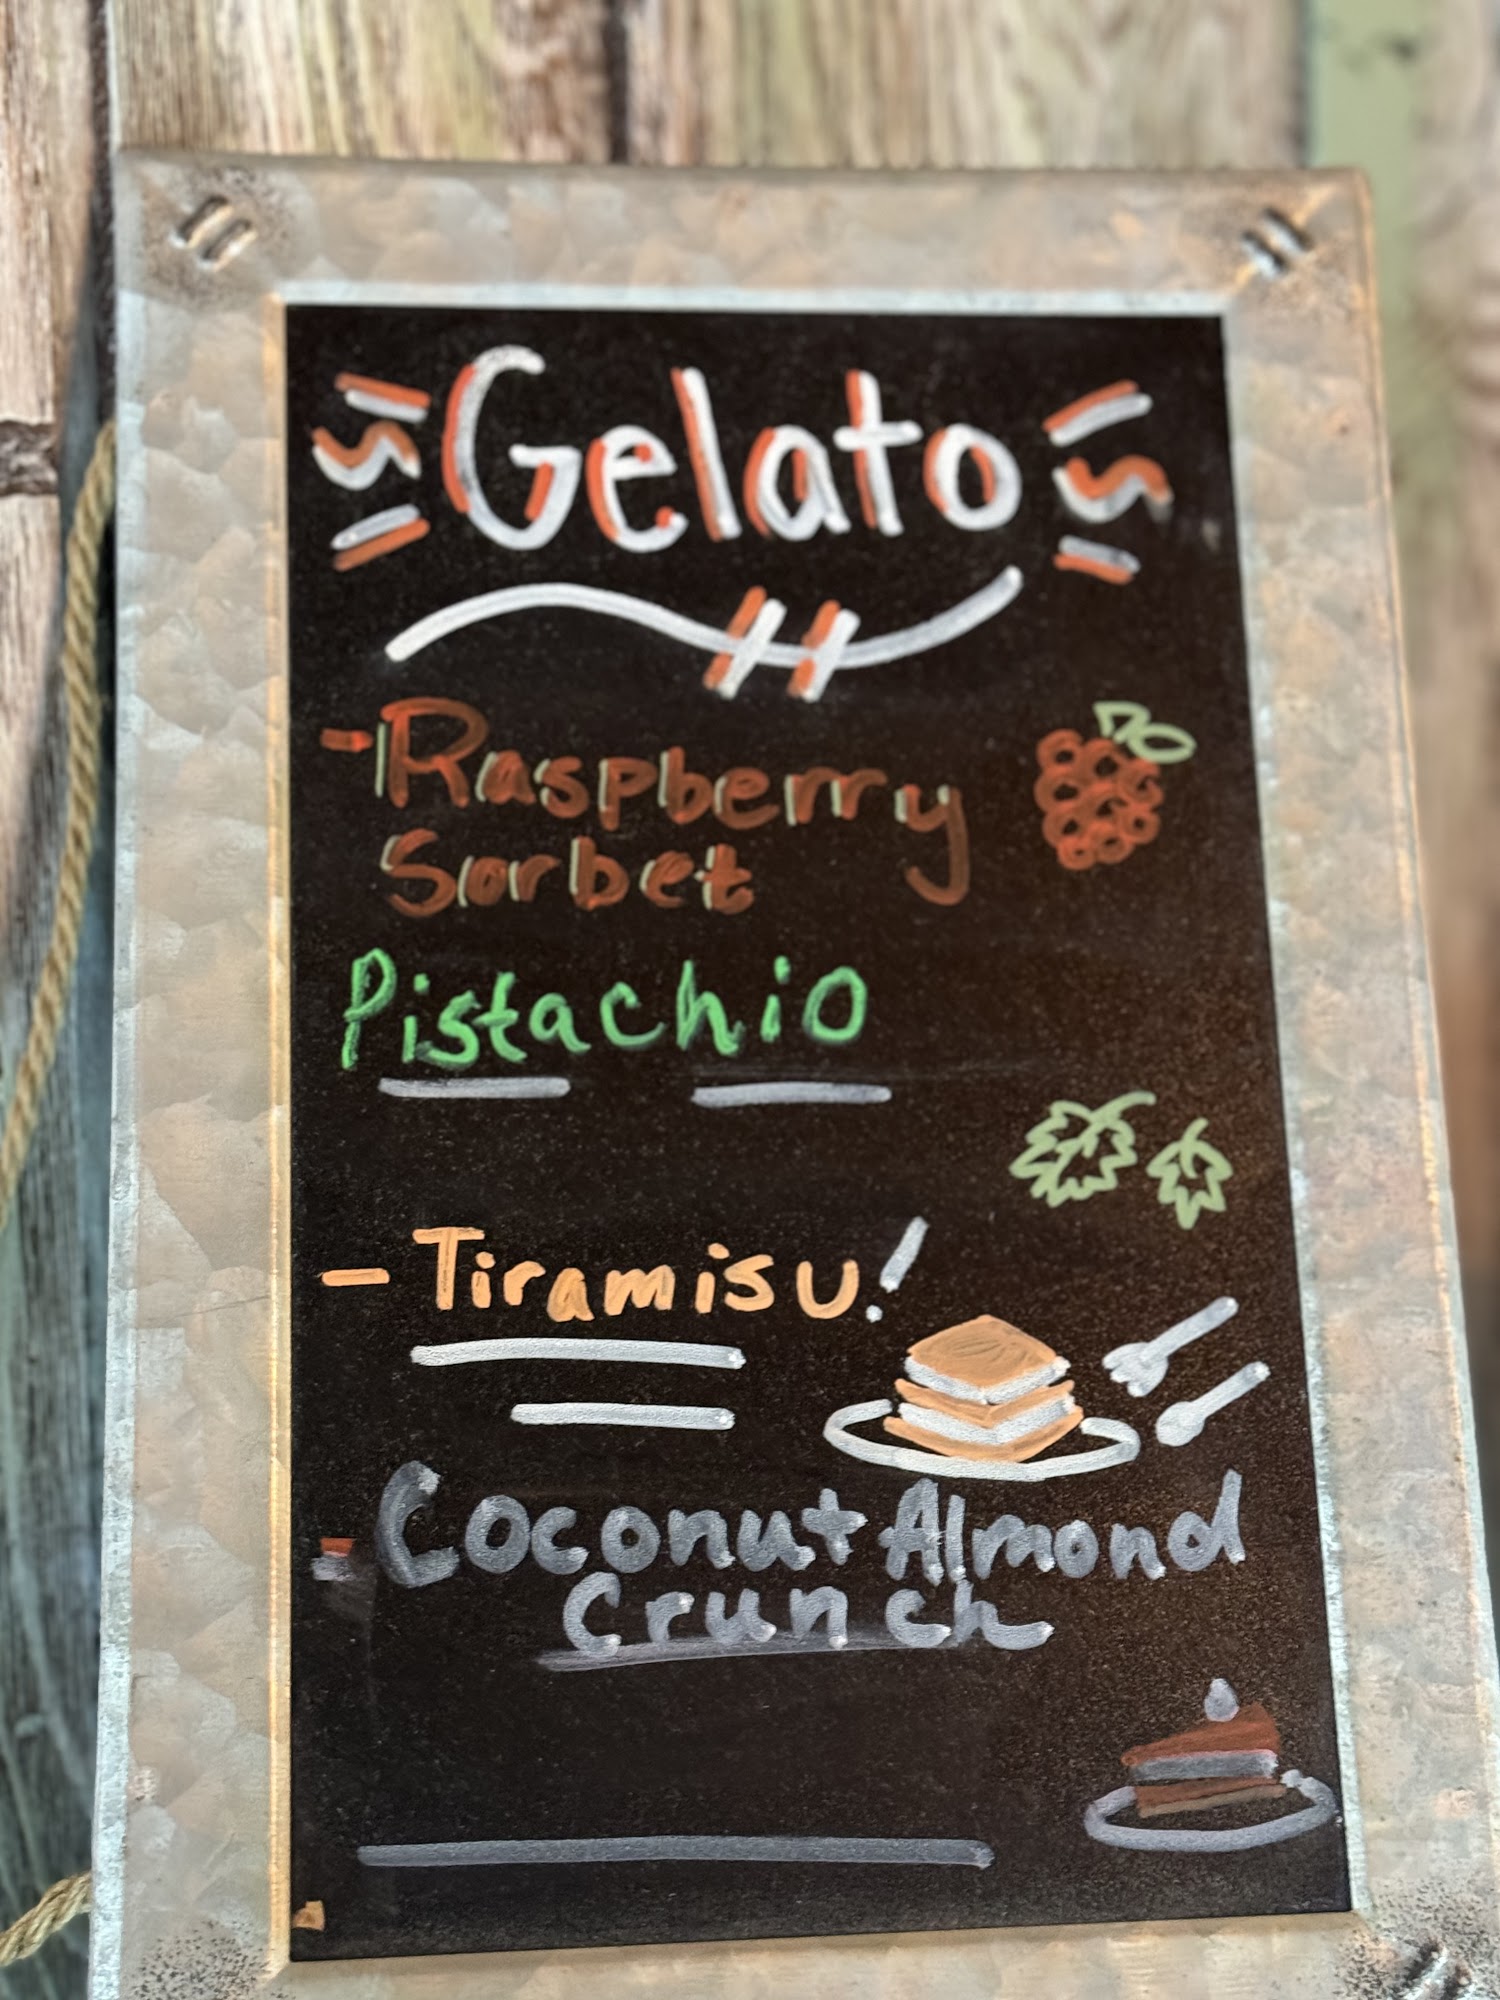 Gelato
- Raspberry
Sorbet
Pistachio
- Tiramisu!
- Coconut Almond
Crunch